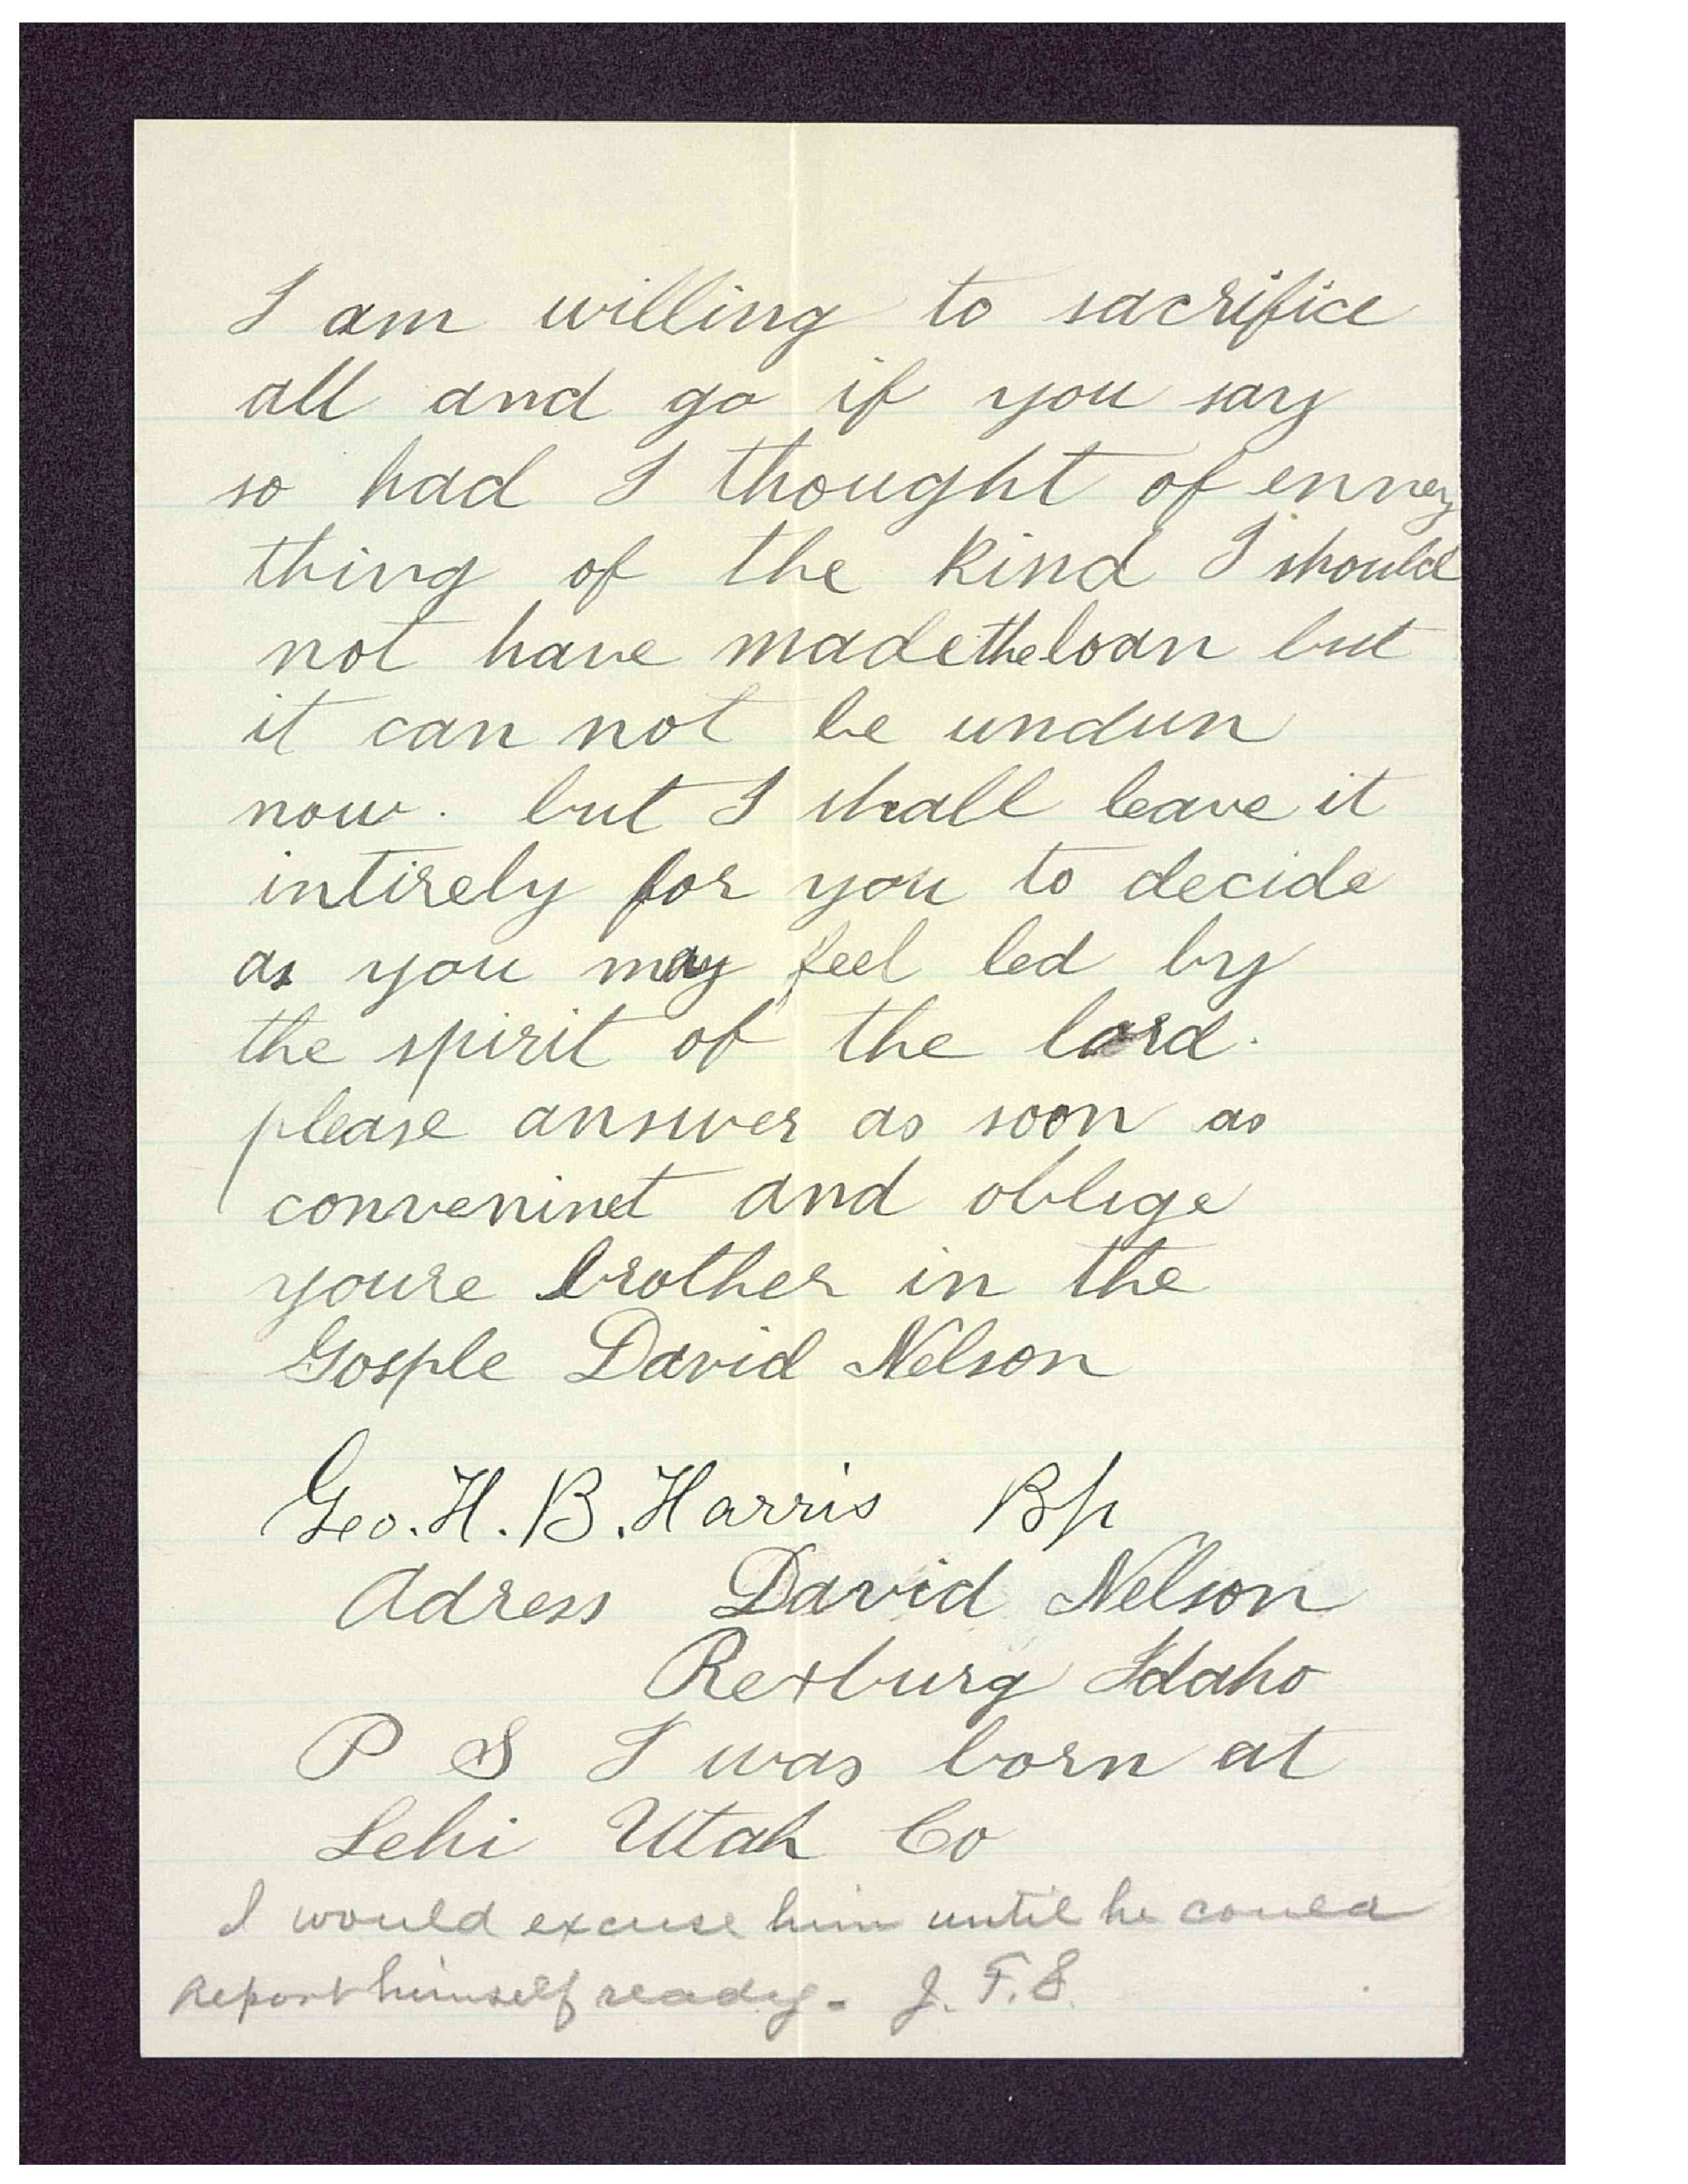 I am willing to sacrifice
all and go if you say
so had I thought of enney
thing of the kind I should
not have made the loan but
it can not be undun
now. but I shall leave it
intirely for you to decide
as you may feel led by
the spirit of the lord.
please answer as soon as
conveninet and oblige
youre brother in the
Gosple David Nelson
Geo. H. B. Harris Bp
Adress David Nelson
Rexburg Idaho
P S I was born at
Lehi Utah Co
I would excuse him until he could
report himself ready - J. F. S.